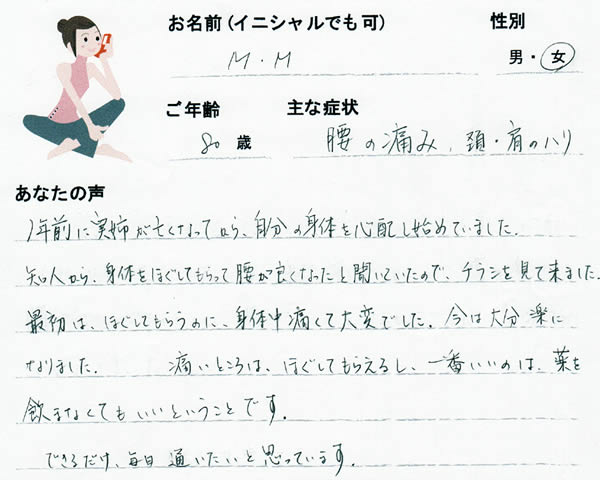 お名前(イニシャルでも可) 性別
M.M 男・女
ご年齢 主な症状
80 歳 腰の痛み、頚・肩のハリ
あなたの声
1年前に実姉が亡くなってから、自分の身体を心配し始めていました。
知人から、身体をほぐしてもらって腰が良くなったと聞いていたので、チラシを見て来ました。
最初は、ほぐしてもらうのに、身体中痛くて大変でした。今は大分楽に
なりました。 痛いところは、ほぐしてもらえるし、一番いいのは、薬を
飲まなくてもいいということです。
できるだけ、毎日通いたいと思っています。